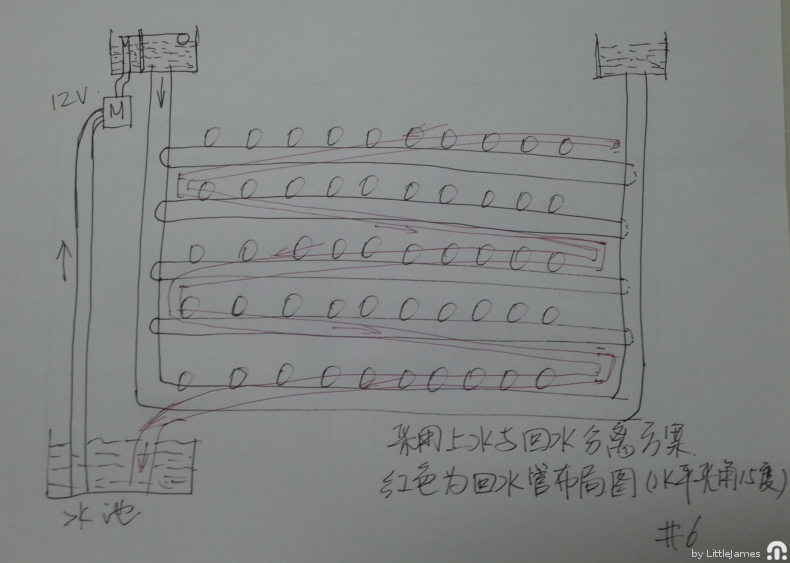 12V.
M
采用上水与回水分离方案.
红色为回水管布局图(水平夹角15度)
水池
#6
by LittleJames